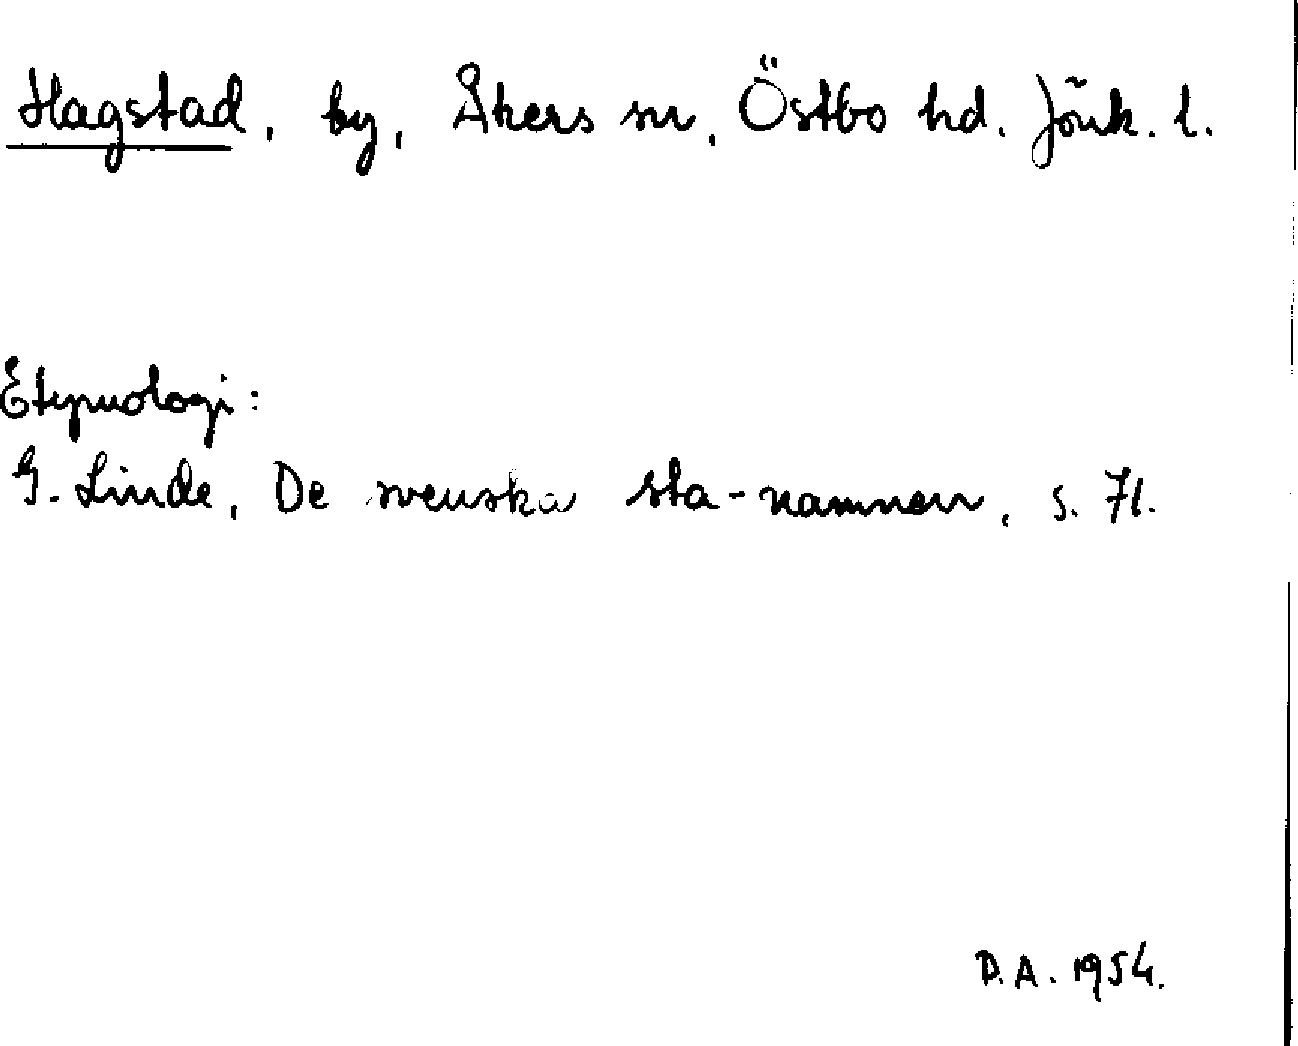 Hagstad, by, Åkers sn, Östbo hd. Jönk. l.
Etymologi:
G. Linde, De svenska sta-namnen, s. 71.
D.A. 1954.